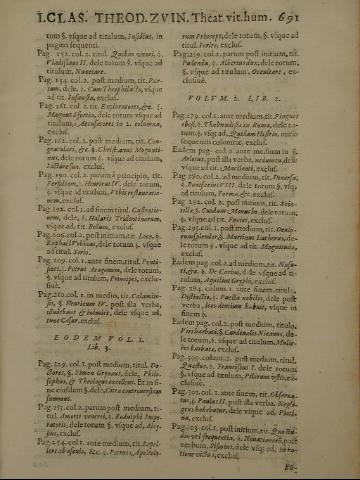 I. CLAS. THEOD. ZVIN. Theat. vit. hum. 691
tum §. vsque ad titulum, Insidias, in
pagina sequenti.
Pag. 152. col. 2. titul. Quidam amori, §.
Vladislaus II. dele totum §. vsque ad
titulum, Nauitare.
Pag. 154. col. 2. post medium, tit. Par-
tum, dele. §. Cum Theophilacto, vsque
ad tit. Infausta, exclus.
Pag. 161. col. 1. tit. Exploratores, &c. §.
Magnus Sfortia, dele totum vsque ad
titulum, Accusatores in 2. columna,
exclus.
Pag. 162. col. 2. post medium, tit. Con-
§. Christianus Mogunti-
nus, dele totum §. vsque ad titulum,
exclus.
Pag. 190. col. 2. parum à principio, tit.
Persidum, §. Henricus IV. dele totum
§. vsque ad titulum, Vibis restauratio-
nem, exclus.
Pag. 192. col. 1. ad finem titul. Castratio-
nem, dele, §. Hilaris Tridentinorum,
vsque ad, tit. Bellum, exclus.
Pag. 206. col. 2. post initium, tit. Loco, §.
Raphael Vrbinas, dele totum §. vsque
ad titul. Seris.
Pag. 209. col. 1. ante finem, titul. Ponti-
fices, §. Petrus Aragonum, dele totum,
§. vsque ad titulum, Principes, exclu-
siuè.
Pag. 210. col. 1. in medio, tit. Calamita-
§. Henricus IV. post illa verba,
cludebant & inhonora, dele vsque ad,
tunc Cæsar, exclus.
EODEM VOL. I.
Lib. 3.
Pag. 229. col. 1. post medium, titul. Do-
§. Simon Grynæus, dele, Philo-
sophus, & Theologus excellens. Et in fi-
ne eiusdem §. dele, Cura controuersiam
summam.
Pag. 251. col. 2. parum post medium, ti-
tul. Amoris venerei, §. Rodulphi Impe-
ratoris, dele totum §. vsque ad,
exclus.
Pag. 254. col. 1. ante medium, tit.
§. Petrus, Apostolo-
rum Princeps, dele totum, §. vsque ad
titul. Ferire, exclus.
Pag. 259. col. 1. parum post initium, tit.
Pudenda, §. Albertordino, dele totum,
§. vsque ad titulum, Occultare, ex-
clusiuè.
VOLVM. 2. LIB. 2.
Pag. 279. col. 1. ante medium, tit. Pinguet
obesi, §. in Roma, dele to-
tum, §. vsque ad, Quidam Histrio, initio
sequentis columnæ, exclus.
Eadem pag. col. 2. ante medium in §.
post illa verba, dele
vsque ad tit. Macilenti, exclus.
Pag. 280. col. 2. ad medium, tit. Diuersa,
§. Bonifacius VIII. dele totum §. vsque
ad titulum, Forma, &c. exclus.
Pag. 292. col. 2. post initium, tit.
§. Quidam Monachus, dele totum,
§. vsque ad tit. Faciei, exclus.
Pag. 293. col. 1. post medium, tit. Oculo-
rum splendor, §. Martinus Lutherus, de-
le totum §. vsque ad tit. Magnitudo,
exclus.
Eadem pag. col. 2. ad medium, tit. Nasu-
ti, &c. §. De Carino, dele vsque ad ti-
tulum, Aquilini Gryphi, exclus.
Pag. 294. colum. 1. ante finem, titulo,
§. Puella nobilis, dele post
verba, vsque in
finem.
Eadem pag. col. 2. post medium, titulo,
§. Cardinalis Nicænus, de-
le totum §. vsque ad titulum, Mulie-
res barbatæ, exclus.
Pag. 300. colum. 2. post medium, titulo,
§. Franciscus I. dele totum
§. vsque ad titulum, Pilorum vsus, ex-
clusiuè.
Pag. 302. col. 2. ante finem, tit.
§. Paulus II. post illa verba, Neglen-
dele totum, vsque ad,
exclus.
Pag. 303. col. 1. post initium, tit.
dam vel frequentia, §. post
verbum, dele vsque ad,
exclus.
EO-